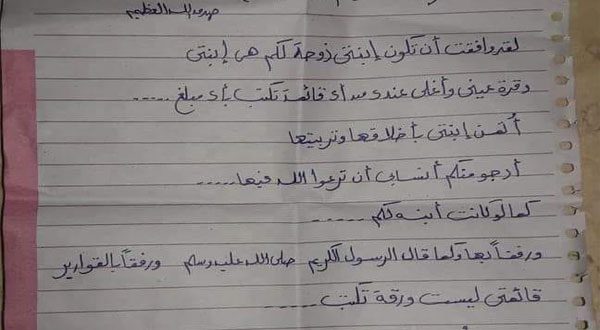 صدق الله العظيم
لقد وافقت أن تكون إبنتى زوجة لكم هى إبنتى
وقرة عينى وأغلى عندى من أى قائمة تكتب بأى مبلغ .....
أثمن إبنتى بأخلاقها وتربيتها
أرجو منكم أنسابى أن ترعوا الله فيها .....
كما لو كانت أبنه لكم .....
ورفقاً بها وكما قال الرسول الكريم صلى الله عليه وسلم ورفقاً بالقوارير
قائمتى ليست ورقة تكتب .....